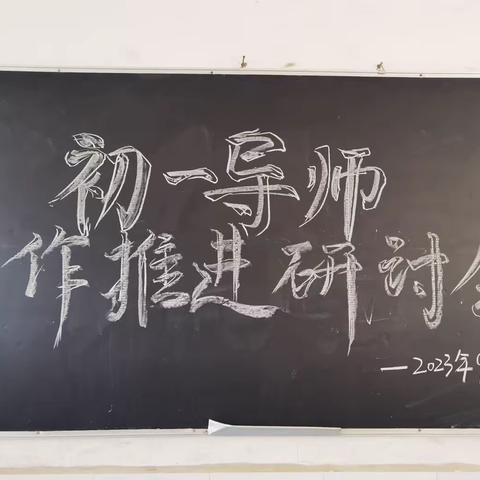 初一导师
作推进研讨会
—2023年9